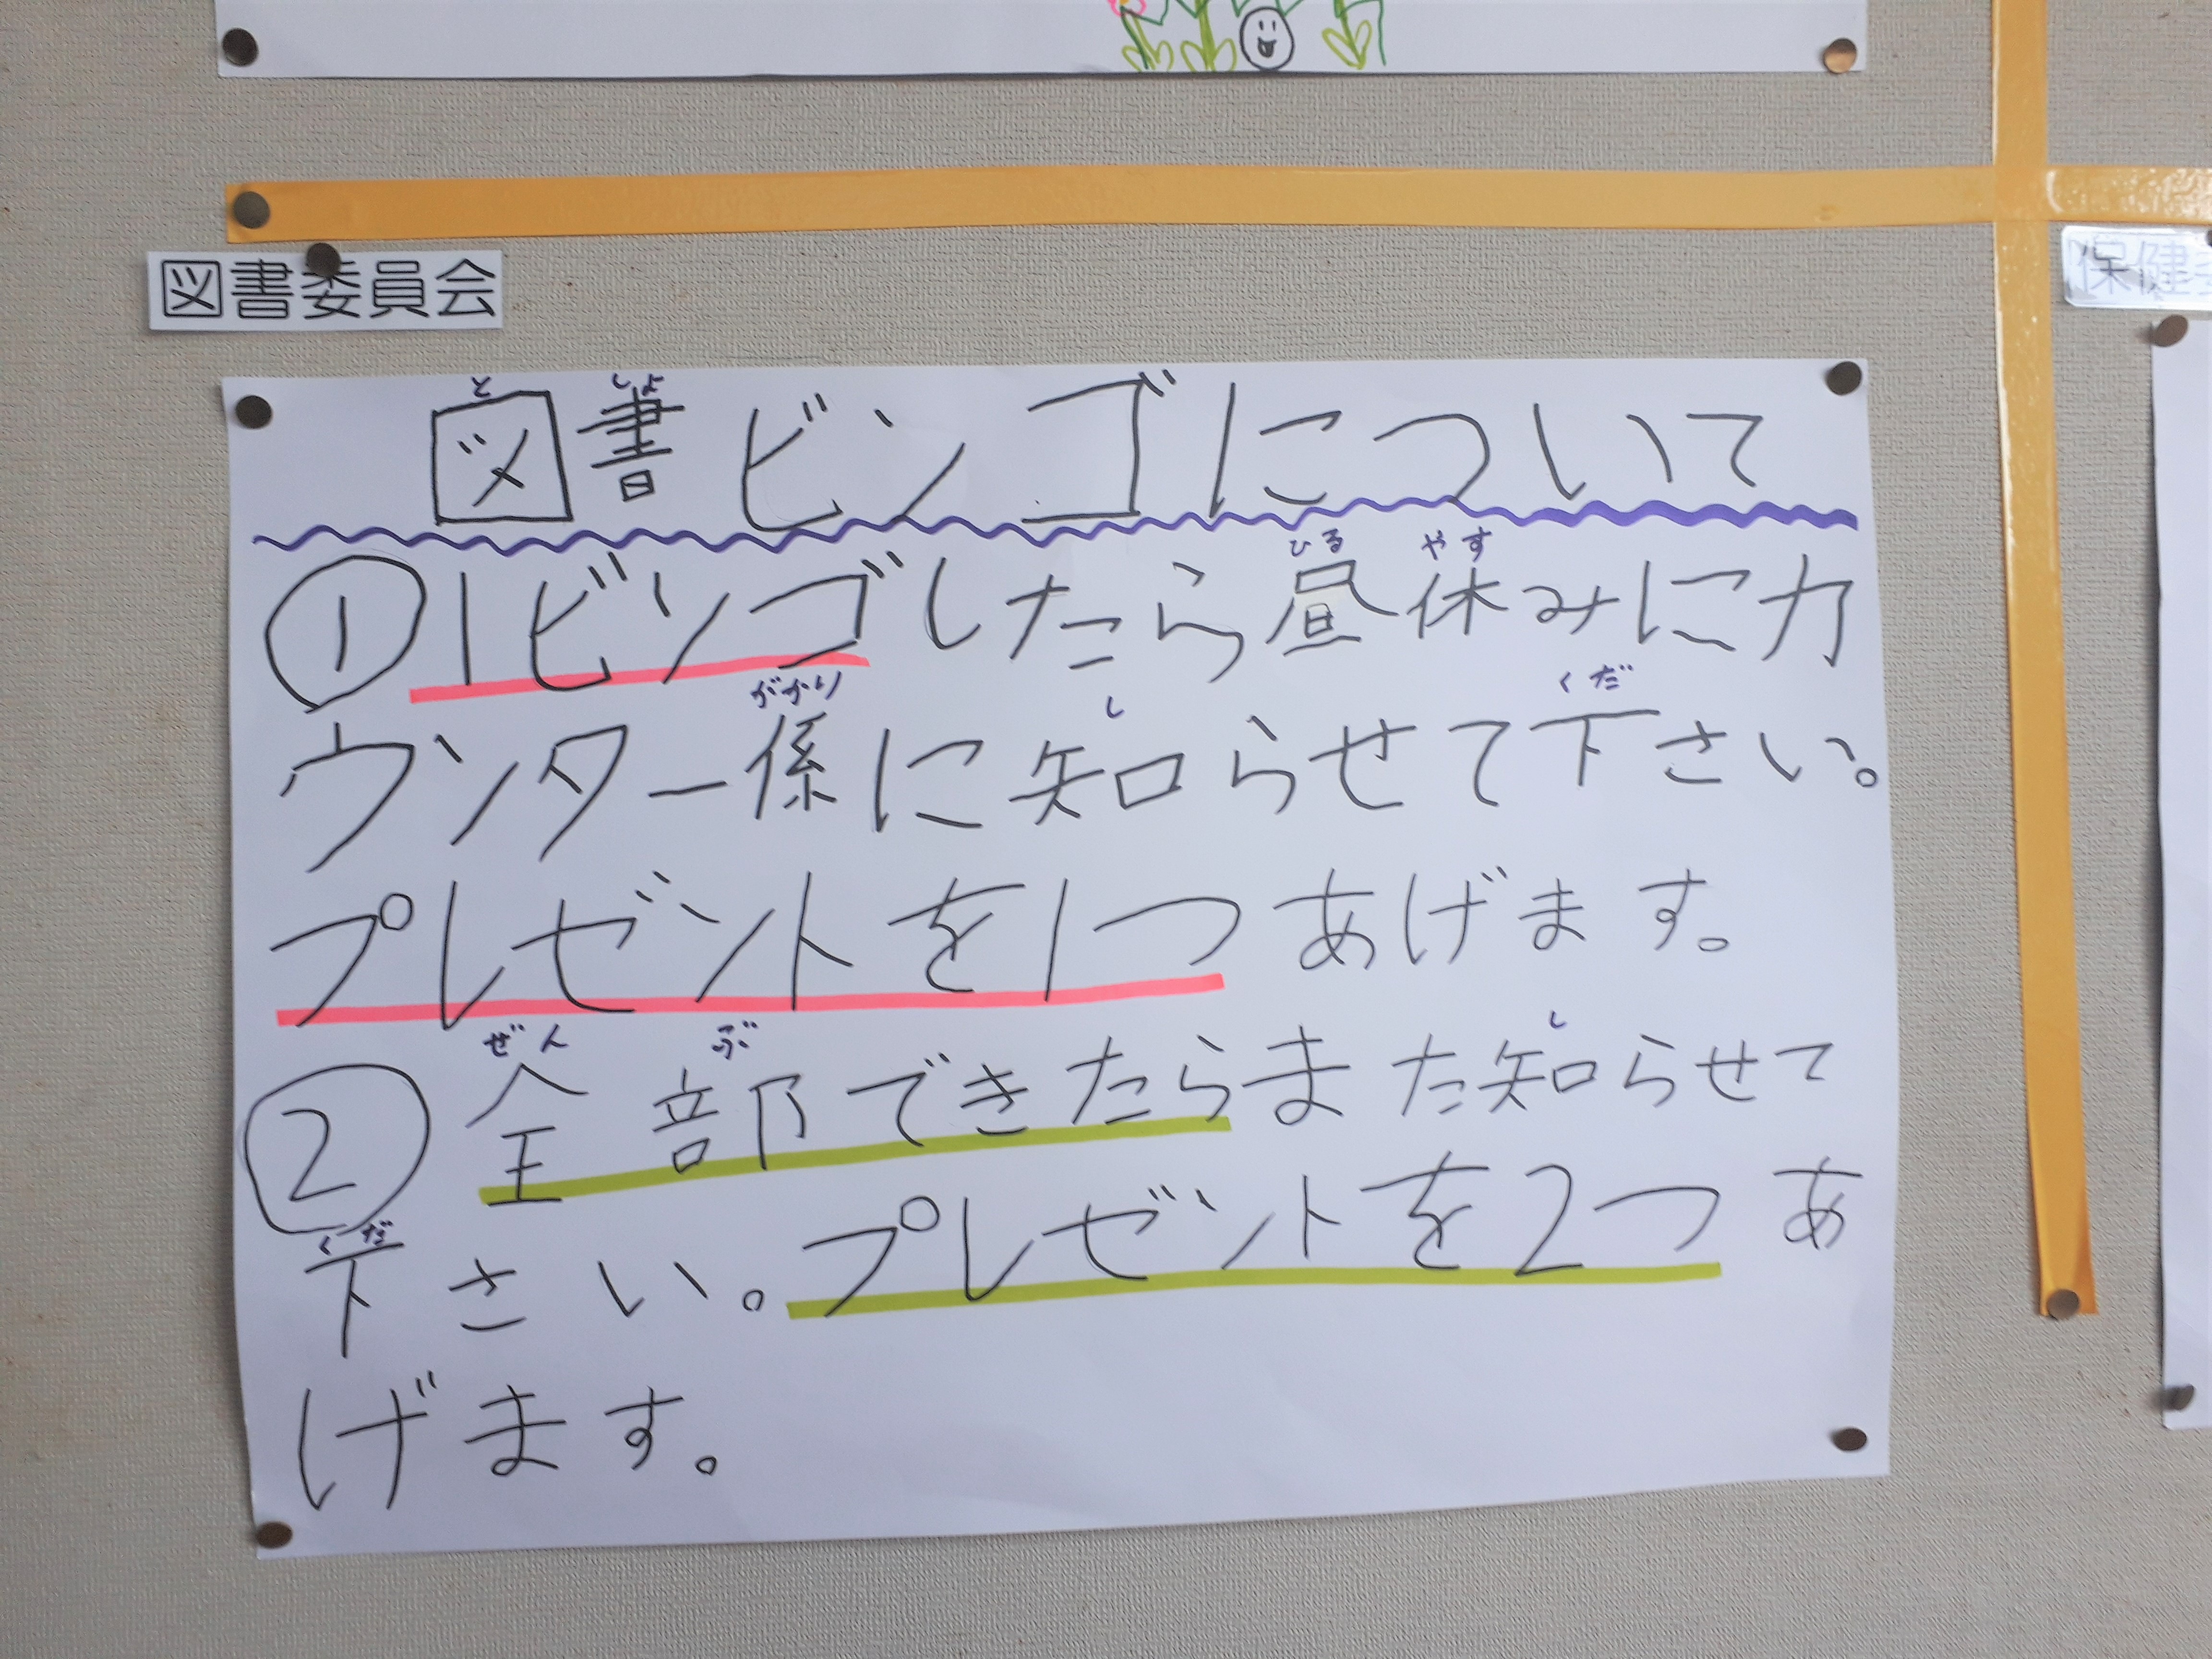 図書委員会
保健
図書ビンゴについて
としょ
①1ビンゴしたら昼休みにカ
ひる やす
ウンター係に知らせて下さい。
がかり し くだ
プレゼントを1つあげます。
②全部できたらまた知らせて
ぜん ぶ し
下さい。プレゼントを2つあ
くだ
げます。